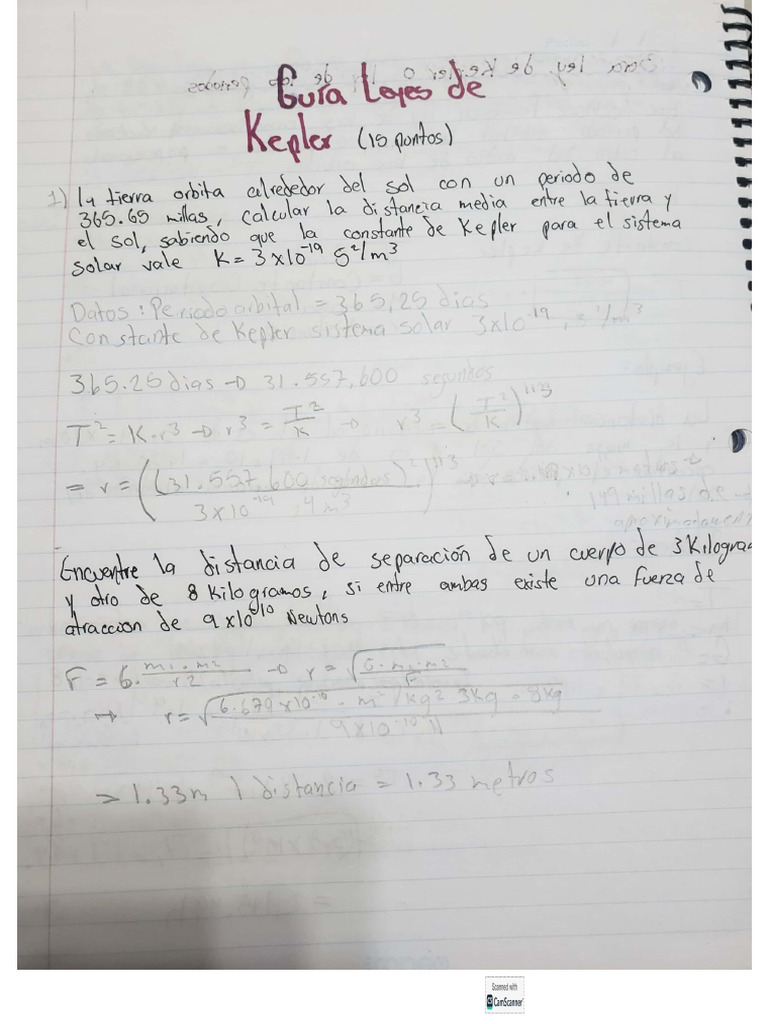 Guía Leyes de
Kepler (15 puntos)
1) La tierra orbita alrededor del sol con un periodo de
365.65 millas, calcular la distancia media entre la tierra y
el sol, sabiendo que la constante de Kepler para el sistema
solar vale K = 3x10^-19 s²/m³
Datos: Periodo orbital = 365,25 dias
Constante de Kepler sistema solar 3x10^-19, s²/m³
365.25 dias → 31.557,600 segundos
T² = K·r³ → r³ = T²/K → r³ = (T²/K)^1/3
= r = ((31.557,600 segundos)²/3x10^-19 m³)^1/3
149 millas de
Encuentre la distancia de separación de un cuerpo de 3 Kilogra
y otro de 8 kilogramos, si entre ambas existe una fuerza de
atraccion de 9x10^-10 Newtons
F = G. m1.m2/r2 → r = √G.m1.m2/F
→ r = √6.679x10 m²/kg² 3Kg . 8Kg/9x10^-10
→ 1.33m | distancia = 1.33 metros
Scanned with
CamScanner